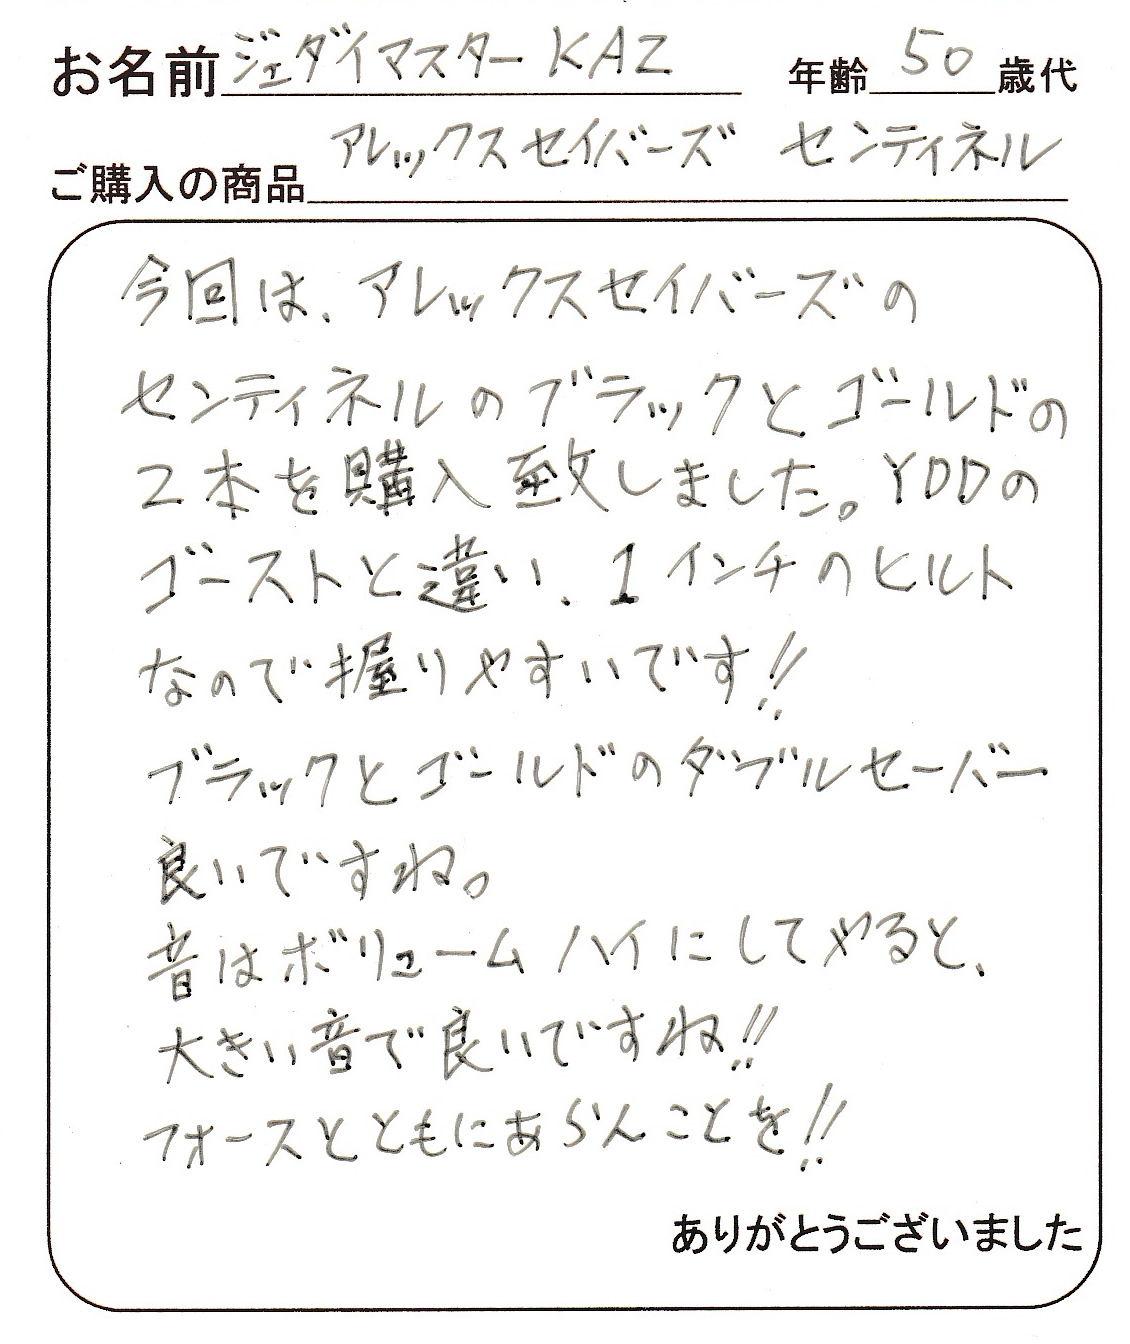 お名前 ジェダイマスター KAZ 年齢 50 歳代
ご購入の商品 アレックスセイバーズ センティネル
今回は、アレックスセイバーズの
センティネルのブラックとゴールドの
2本を購入致しました。YDDの
ゴーストと違い、1インチのヒルト
なので握りやすいです!!
ブラックとゴールドのダブルセーバー
良いですね。
音はボリュームハイにしてやると、
大きい音で良いですね!!
フォースとともにあらんことを!!
ありがとうございました